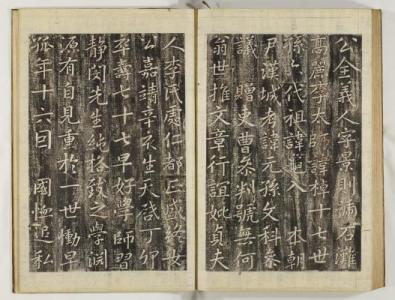 公全義人字景則號石灘
高麗李太師諱棹十七世
孫六代祖諱入 本朝
漢城考諱元孫文科參
議贈吏曹參判號無何
翁世推文章行誼妣貞夫
人李氏仁都正盛終女
公嘉靖辛亥生天啓丁卯
卒壽七十七早好學師習
靜閔先生純格致之學淵
源有自見重於一世慟早
孤年十六 國恤追私